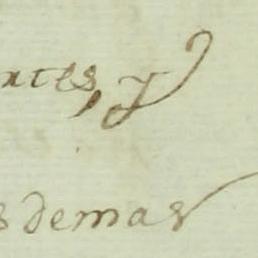 ntes, y
s demas